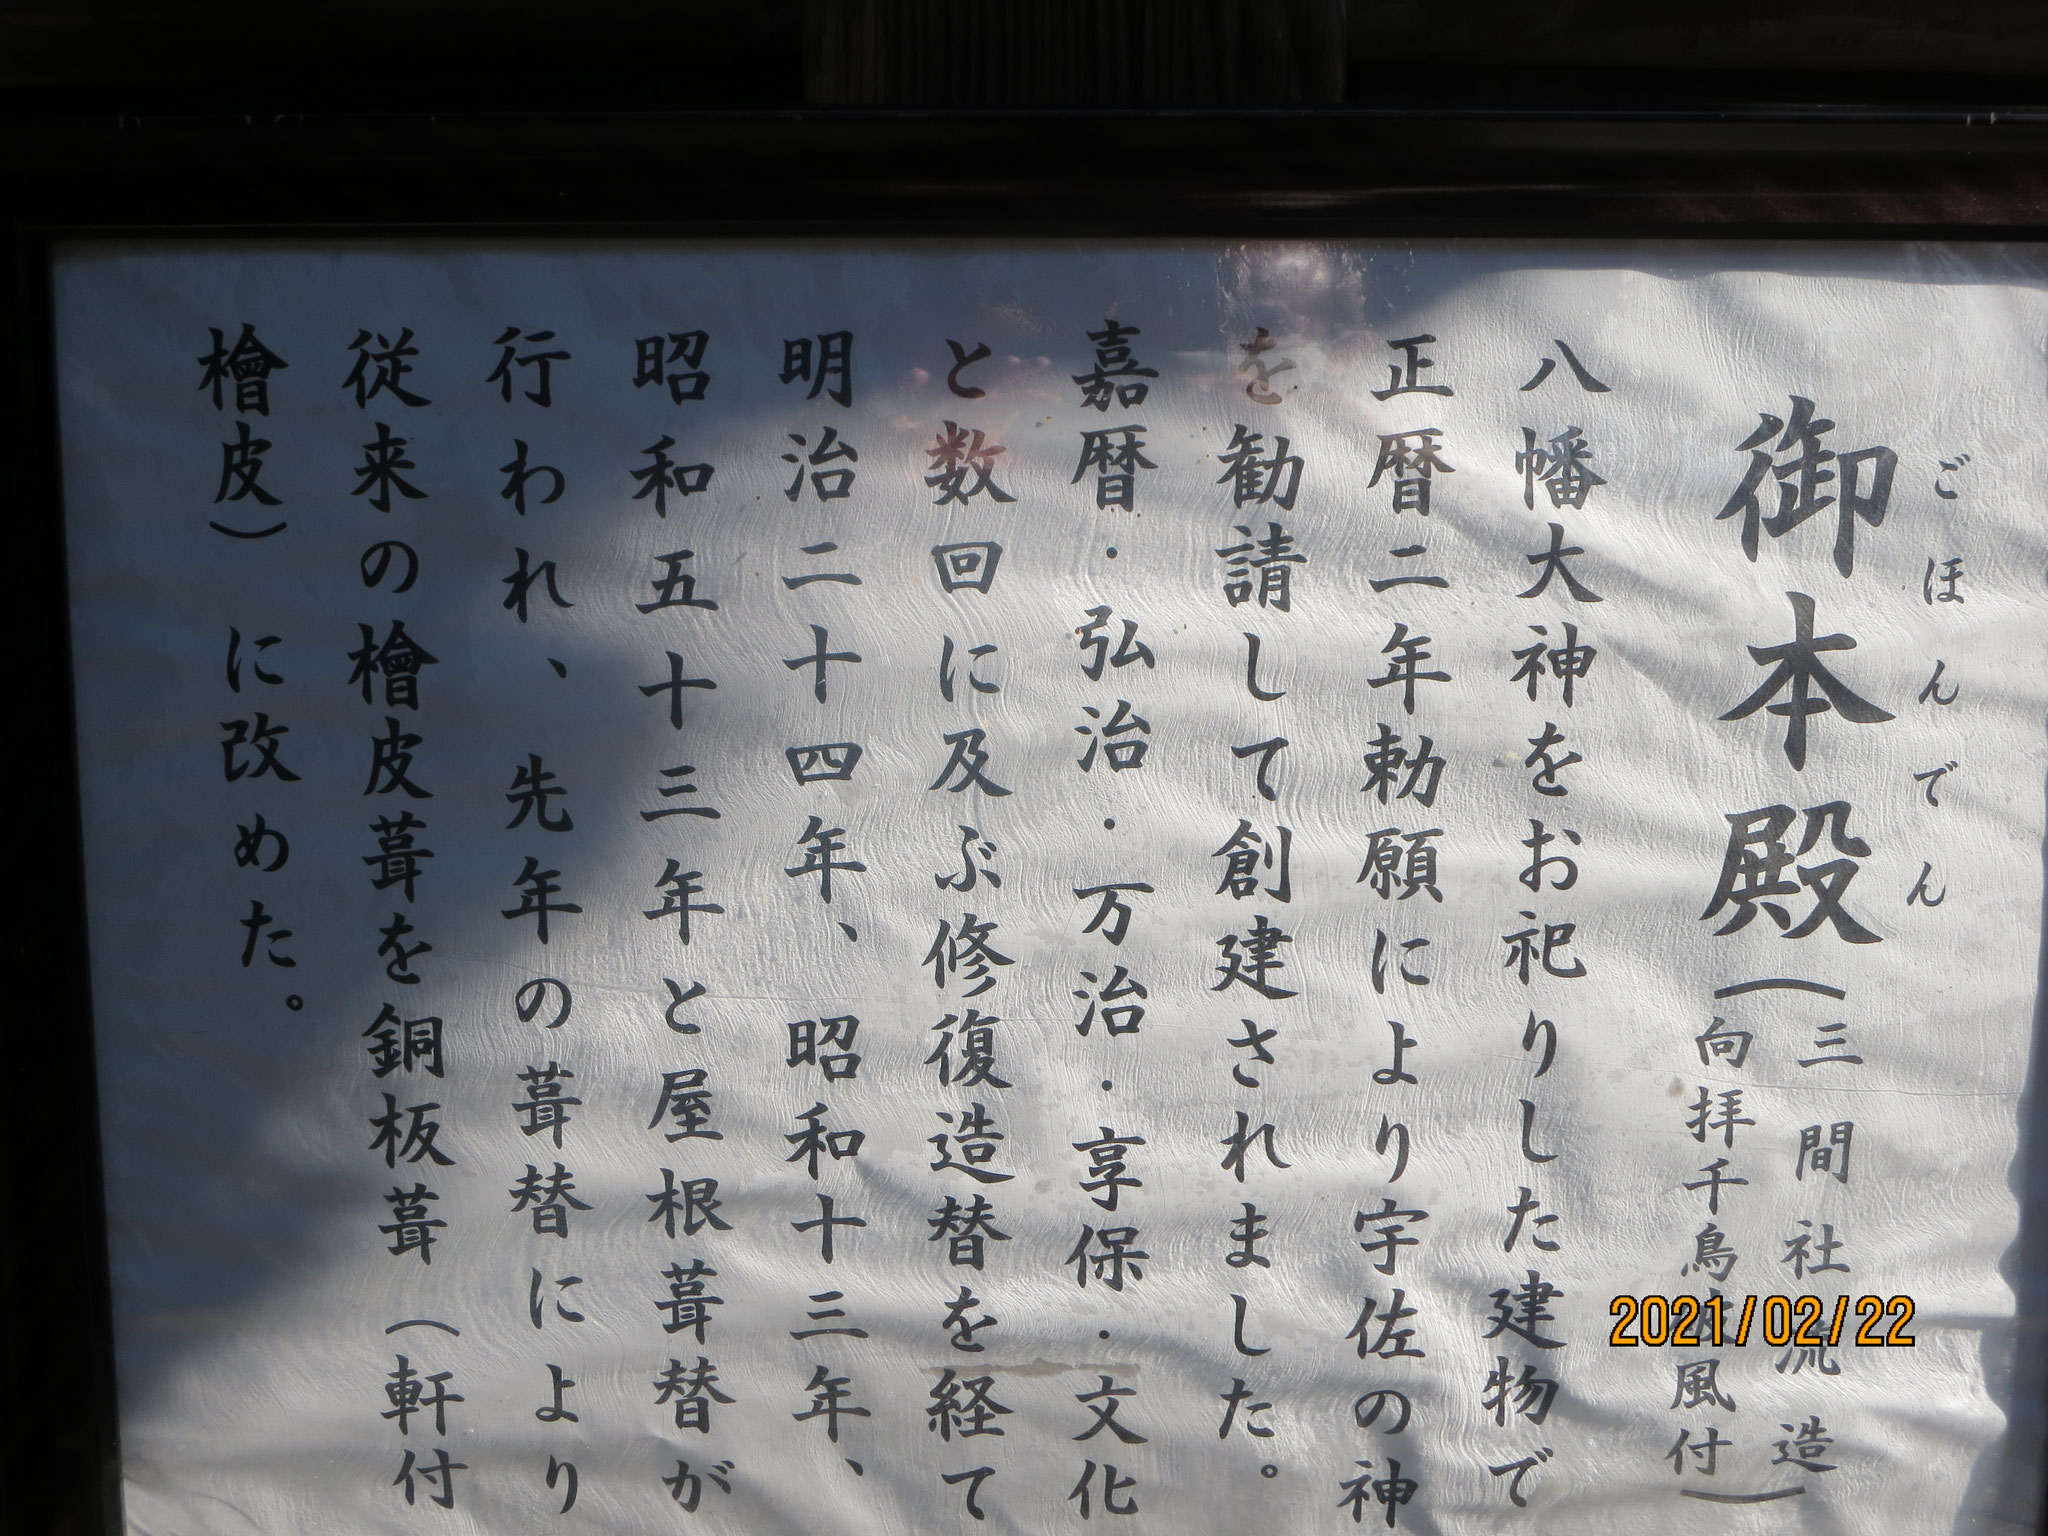 御本殿
ごほんでん
(三間社流造
向拝千鳥破風付)
八幡大神をお祀りした建物で
正暦二年勅願により宇佐の神
を勧請して創建されました。
嘉暦・弘治・万治・享保・文化
と数回に及ぶ修復造替を経て
明治二十四年、昭和十三年、
昭和五十三年と屋根葺替が
行われ、先年の葺替により
従来の檜皮葺を銅板葺(軒付
檜皮)に改めた。
2021/02/22